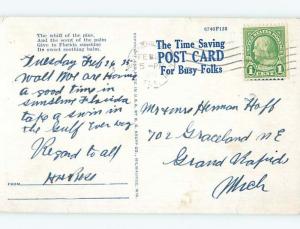 The whiff of the pine,
And the scent of the palm
Give to Florida sunshine
Its sweet soothing balm.
Tuesday Feb 26
Wall Not are Home
a good time in
sunshiny Florida
take a swim in
the Gulf Ever day
Regard to all
HH Ross
FROM
6740F133
The Time Saving
POST CARD
For Busy Folks
1 CENT 1
Mr & Mrs Herman Hoff
702 Graceland NE
Grand Rapids
Mich